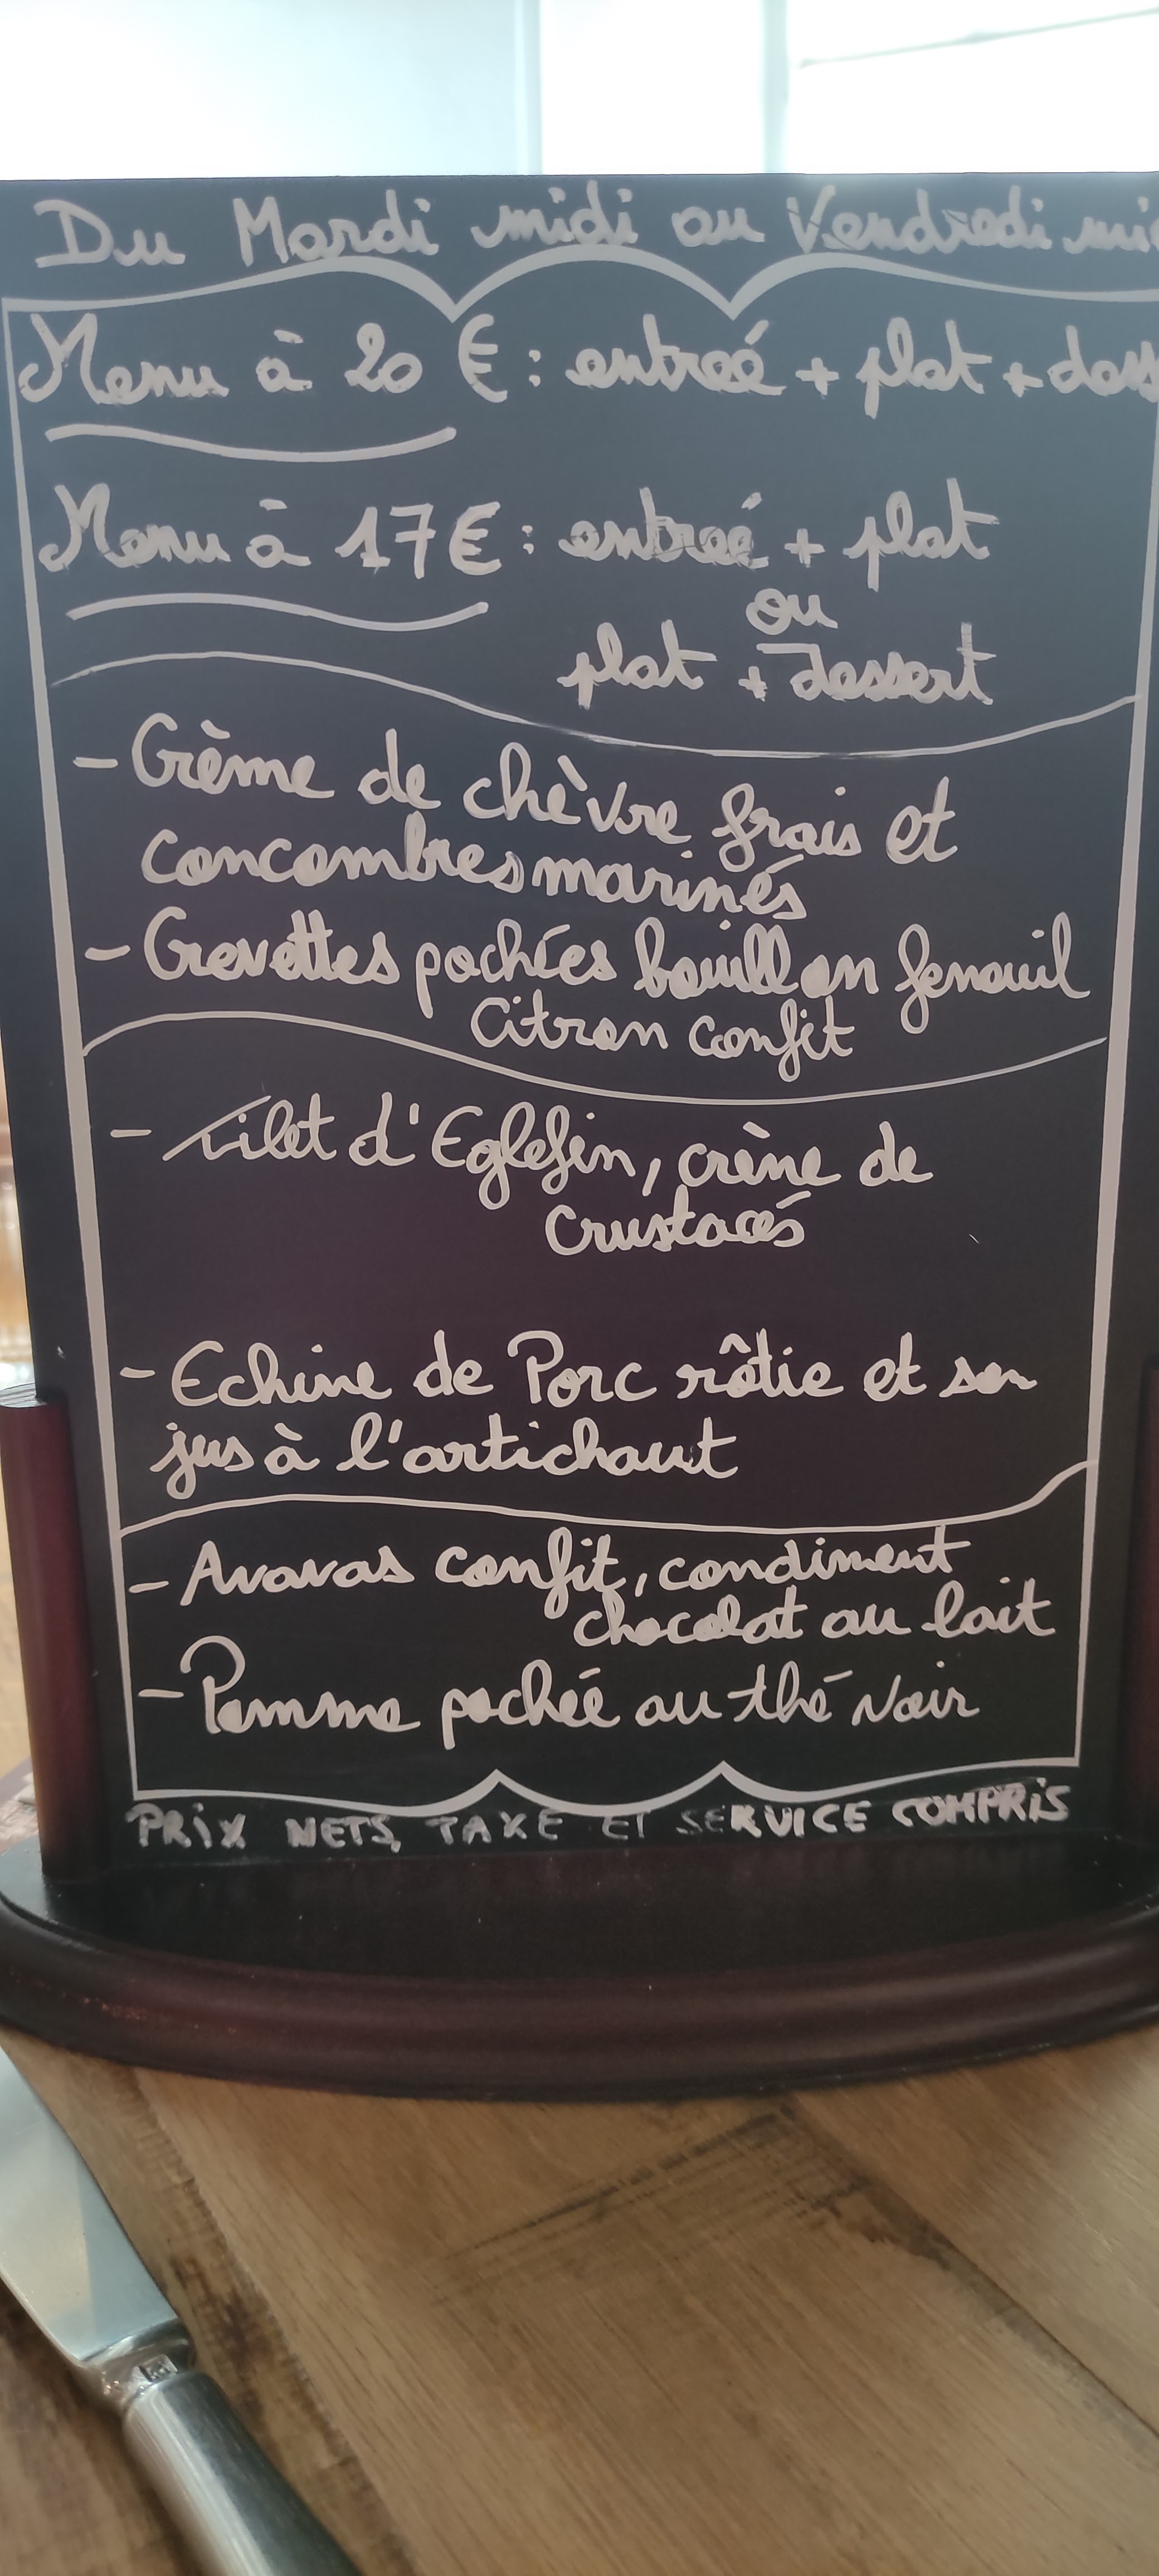 Du Mardi midi au Vendredi mi
Menu à 20 € : entreé + plat + dess
Menu à 17€ : entreé + plat
ou
plat + dessert
- Crème de chèvre frais et
concombres marinés
- Crevettes pochées bouillon fenouil
Citron confit
- Filet d'Eglefin, crème de
Crustacés
- Echine de Porc rôtie et son
jus à l'artichaut
- Ananas confit, condiment
chocolat au lait
- Pomme pochée au thé Noir
PRiX NETS, TAXE ET SERVICE COMPRiS